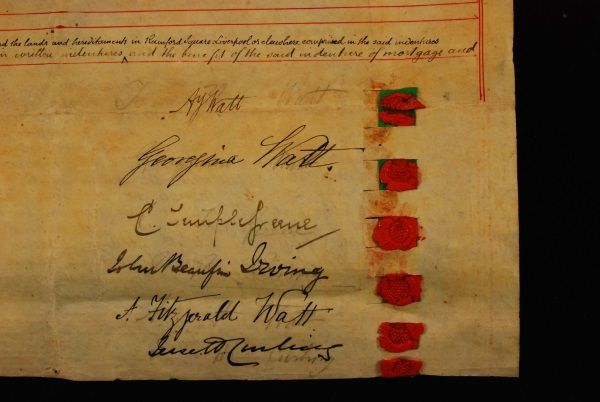 d the lands and hereditaments in Rumford Square Liverpool or elsewhere comprised in the said indentures
in written indentures, and the benefit of the said indenture of mortgage and
Watt
Georgina Watt.
C. Temple Greene
John Beaufin Irving
A. Fitzgerald Watt